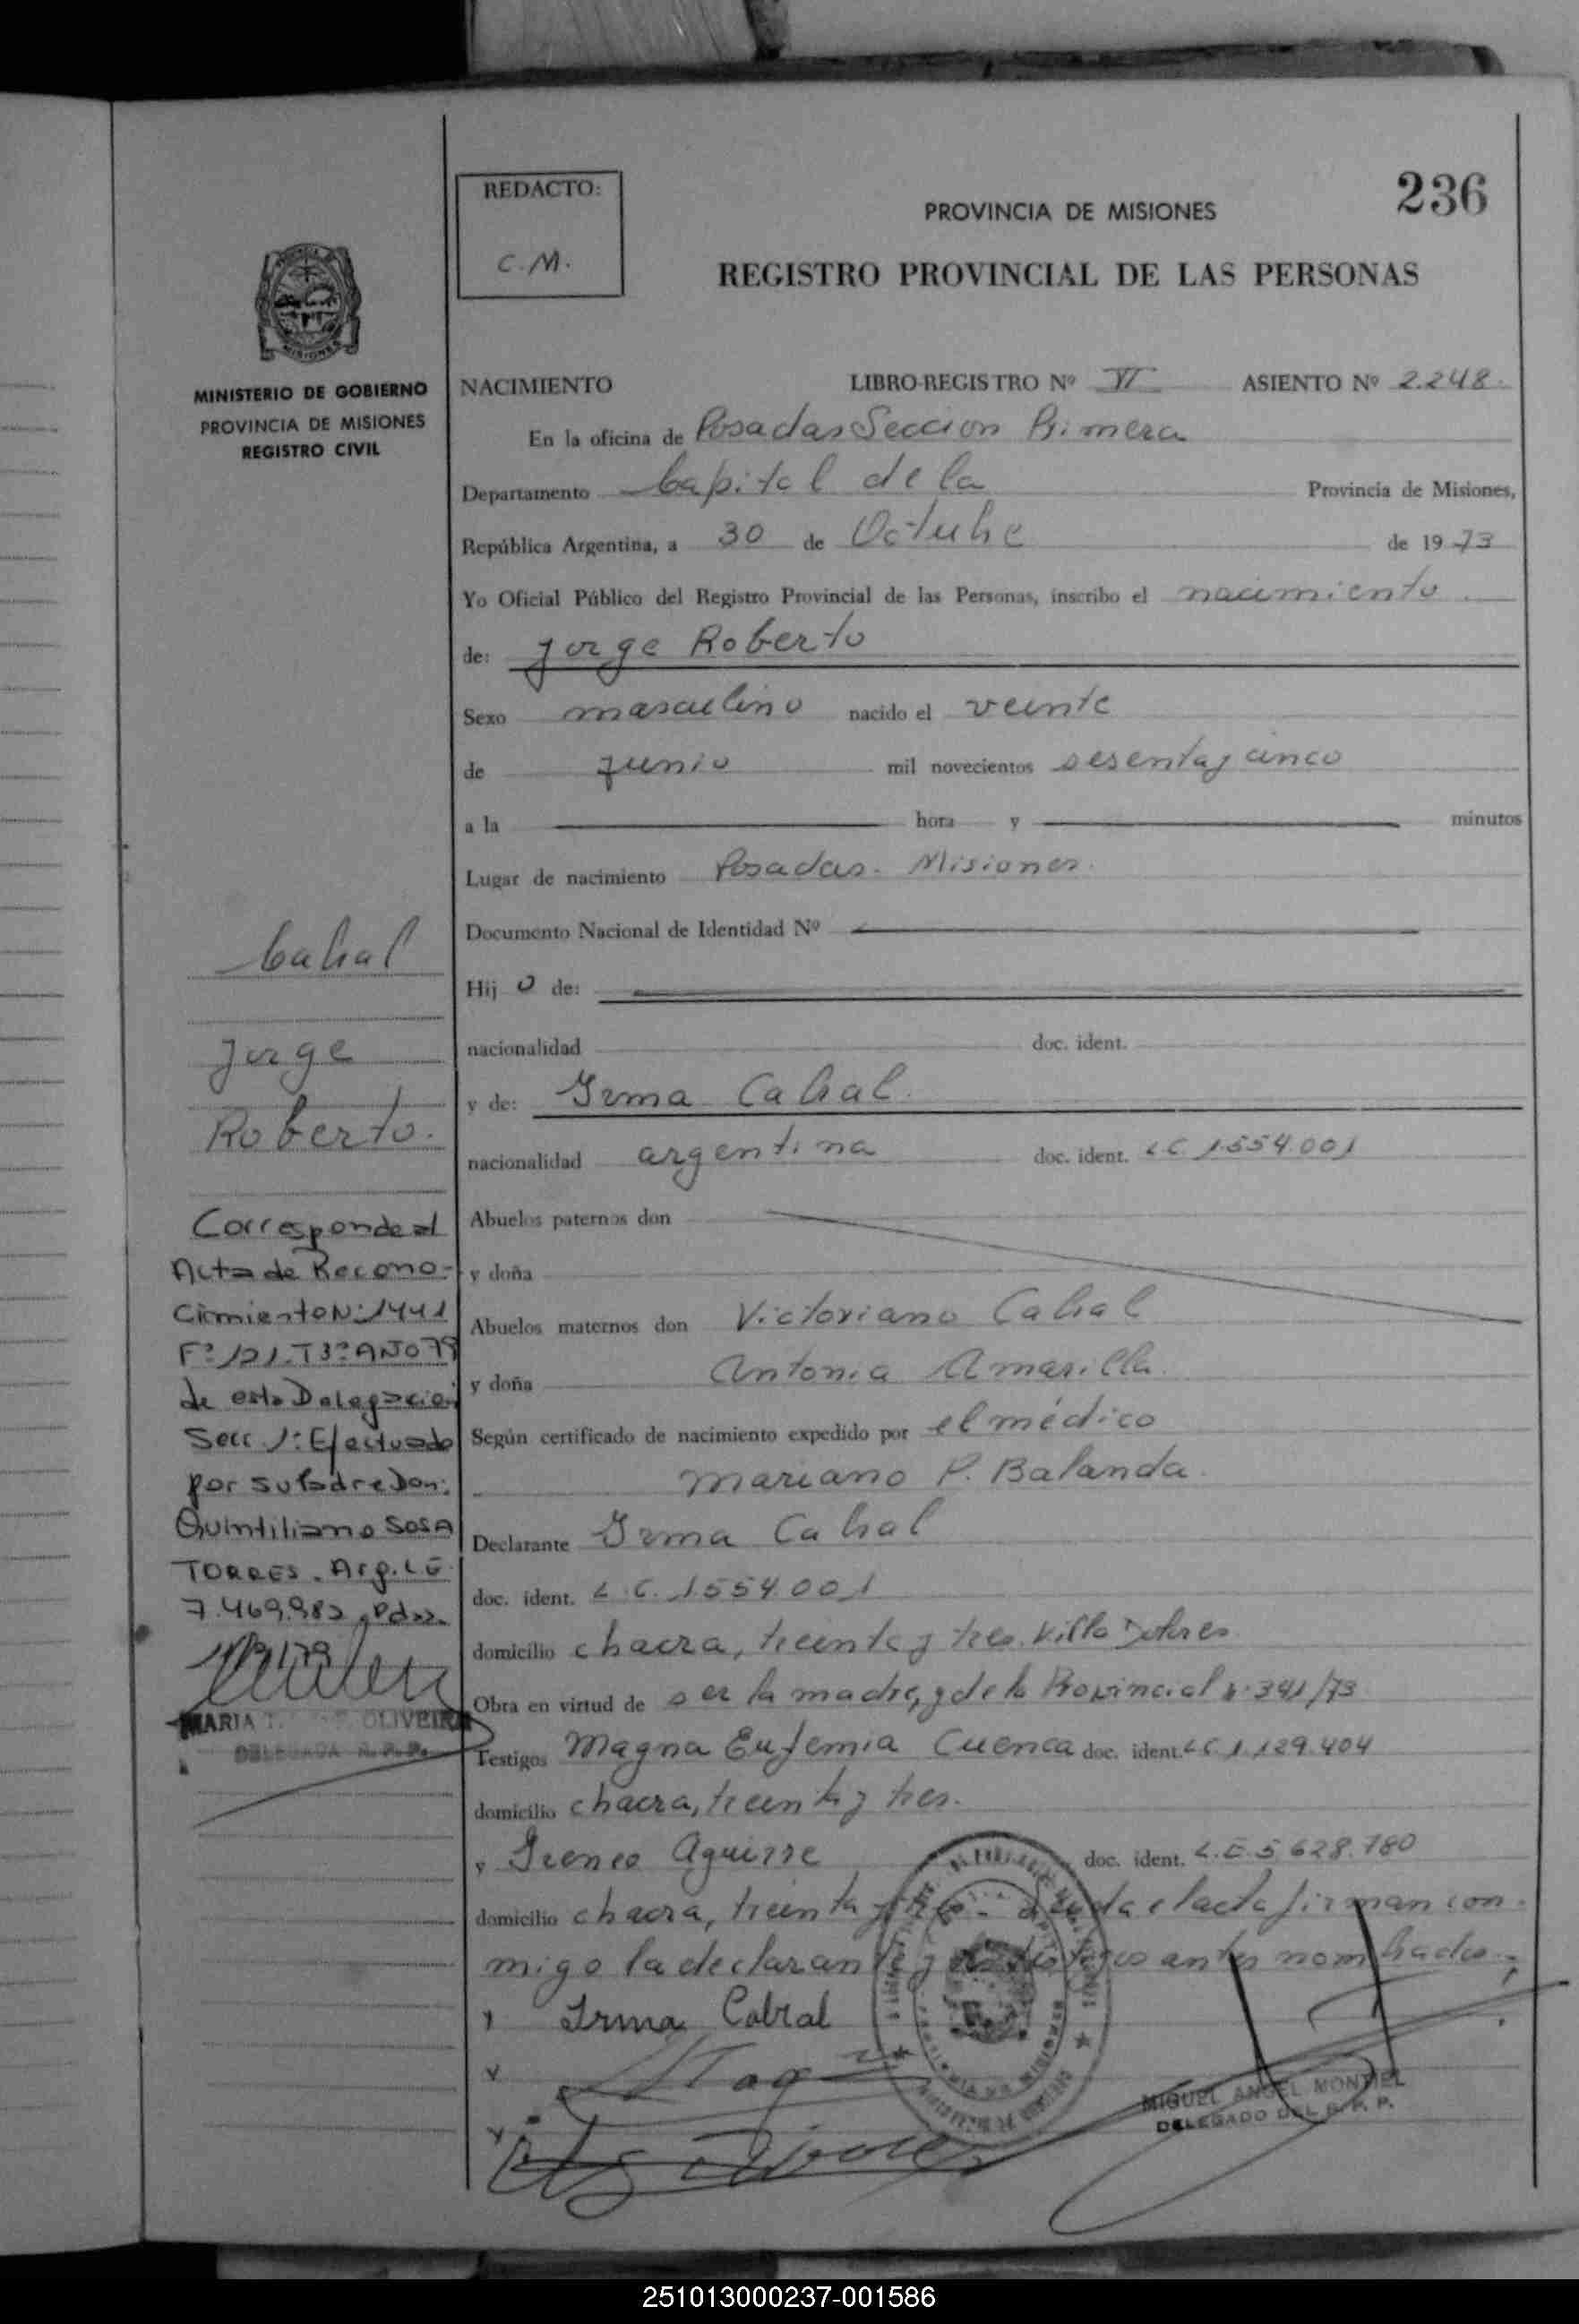 236
REDACTO:
C.M.
PROVINCIA DE MISIONES
REGISTRO PROVINCIAL DE LAS PERSONAS
MISIONES
MINISTERIO DE GOBIERNO
PROVINCIA DE MISIONES
REGISTRO CIVIL
NACIMIENTO LIBRO-REGISTRO Nº VI ASIENTO Nº 2.248.
En la oficina de Posadas Seccion Primera
Departamento Capital de la Provincia de Misiones,
República Argentina, a 30 de Octubre de 1973
Yo Oficial Público del Registro Provincial de las Personas, inscribo el nacimiento
de: Jorge Roberto
Sexo masculino nacido el veinte
de junio mil novecientos sesenta y cinco
a la hora y minutos
Lugar de nacimiento Posadas - Misiones.
Documento Nacional de Identidad Nº
Hij o de:
nacionalidad doc. ident.
y de: Irma Cabral.
nacionalidad argentina doc. ident. L.C. 1.554.001
Abuelos paternos don
y doña
Abuelos maternos don Victoriano Cabral
y doña Antonia Amarilla.
Según certificado de nacimiento expedido por el médico
Mariano P. Balanda.
Declarante Irma Cabral
doc. ident. L.C. 1.554.001
domicilio chacra, treinta y tres. Villa Dolores
Obra en virtud de ser la madre, y de la Provincial Nº 341/73
Testigos Magna Eufemia Cuenca doc. ident. L.C. 1.129.404
domicilio chacra, treinta y tres.
y Ireneo Aguirre doc. ident. L.E. 5.628.780
domicilio chacra, treinta y tres - Leida el acta firman con-
migo la declarante y los testigos antes nombrados.
Irma Cabral
MIGUEL ANGEL MONTIEL
DELEGADO DEL R. P. P.
Cabral
Jorge
Roberto.
Corresponde al
Acta de Recono-
cimiento Nº 1441
Fº 121. Tº 3º AÑO 79
de esta Delegación
Secc 1ª Efectuado
por su Padre Don:
Quintiliano SOSA
TORRES. Arg. L.E.
7.469.982. Pdas.
MARIA OLIVEIRA
DELEGADA R.P.P.
251013000237-001586